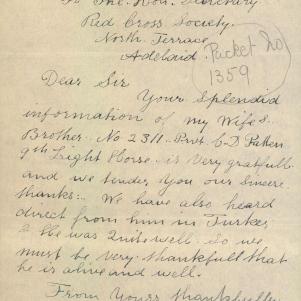 To The Hon. Secretary
Red Cross Society.
North Terrace
Adelaid.
Packet No
1359
Dear Sir
Your Splendid
information of my Wifes
Brother. No 2311 Privt C D Patten
9th Light Horse. is Very gratefull
and we tender you our Sincere
thanks:. We have also heard
direct from him in Turkey
& He was Quite well. So we
must be very thankfull that
he is alive and well.
From Yours thankfully